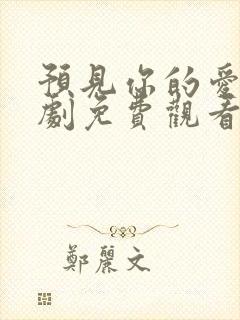 預見你的愛
劇免費觀看
鄭麗文